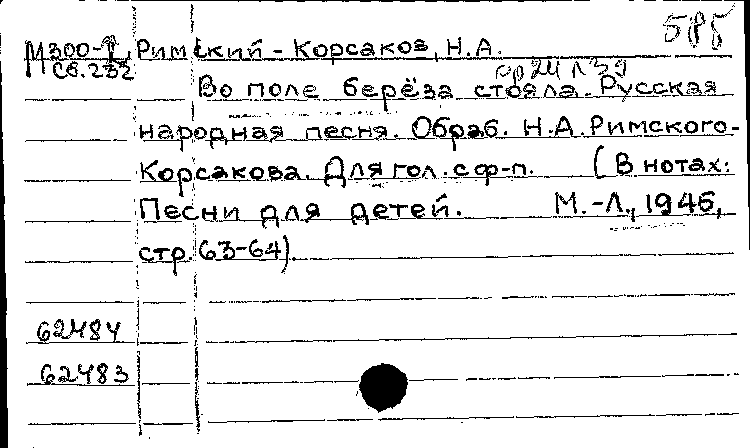 585
М300-Р Римский-Корсаков, Н.А.
Сб.232
Во поле берёза стояла. Русская
народная песня. Обраб. Н.А.Римского-
Корсакова. Для гол. с ф-п. (В нотах:
Песни для детей. М.-Л., 1946,
стр.63-64).
62484
62483